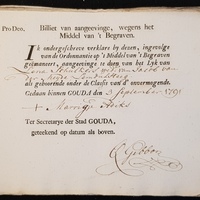 Pro Deo.
Billiet van aangeevinge, wegens het
Middel van 't Begraven.
Ik ondergeschreve verklare by dezen, ingevolge
van de Ordonnantie op 't Middel van 't Begraven
geëmaneert, aangeevinge te doen van het Lyk van
als gehoorende onder de Classis van d' onvermogende.
Gedaan binnen GOUDA den 3 September 1791
+ Marrigje
Ter Secretarye der Stad GOUDA,
geteekend op datum als boven.